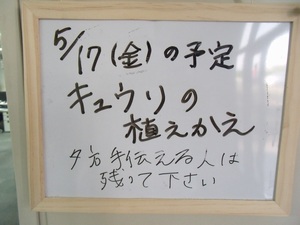 5/17(金)の予定
キュウリの
植えかえ
夕方手伝える人は
残って下さい